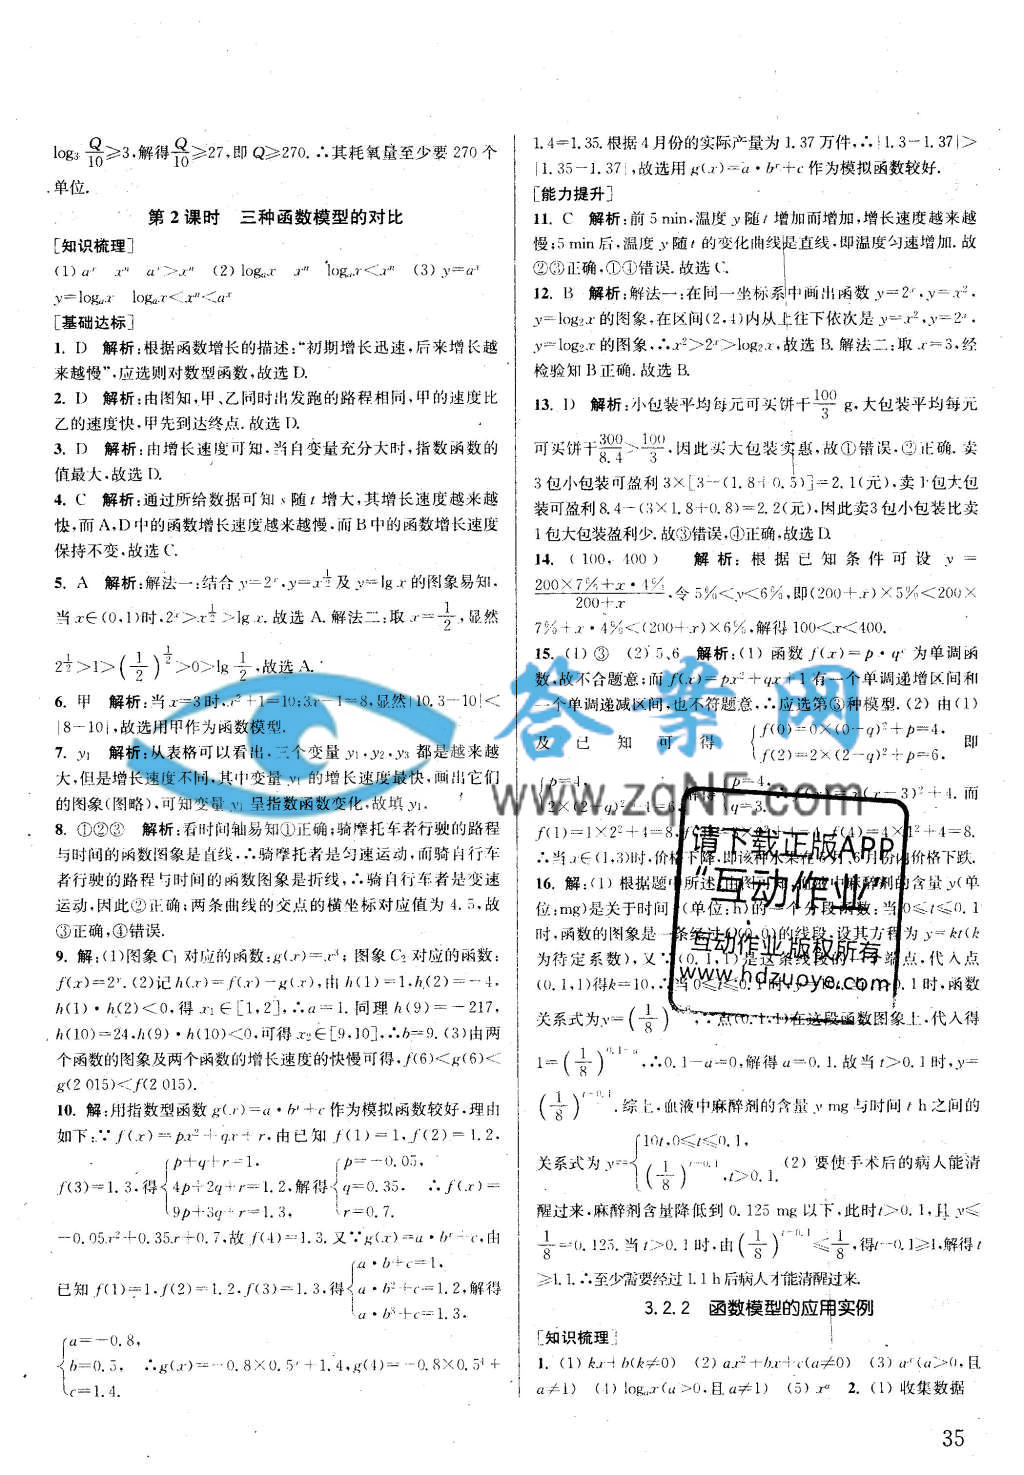 log₃ Q/10⩾3,解得Q/10⩾27,即 Q⩾270. ∴其耗氧量至少要 270 个
单位.
第 2 课时　三种函数模型的对比
[知识梳理]
(1) aˣ　xⁿ　aˣ>xⁿ　(2) logₐx　xⁿ　logₐx<xⁿ　(3) y=aˣ
y=logₐx　logₐx<xⁿ<aˣ
[基础达标]
1. D　解析:根据函数增长的描述:“初期增长迅速,后来增长越
来越慢”,应选则对数型函数,故选 D.
2. D　解析:由图知,甲、乙同时出发跑的路程相同,甲的速度比
乙的速度快,甲先到达终点. 故选 D.
3. D　解析:由增长速度可知,当自变量充分大时,指数函数的
值最大,故选 D.
4. C　解析:通过所给数据可知 s 随 t 增大,其增长速度越来越
快,而 A,D 中的函数增长速度越来越慢,而 B 中的函数增长速度
保持不变,故选 C.
5. A　解析:解法一:结合 y=2ˣ,y=x^(1/2) 及 y=lg x 的图象易知,
当 x∈(0,1)时,2ˣ>x^(1/2)>lg x. 故选 A. 解法二:取 x=1/2,显然
2^(1/2)>1>(1/2)^(1/2)>0>lg 1/2,故选 A.
6. 甲　解析:当 x=3 时,x²+1=10;3x-1=8,显然|10.3-10|<
|8-10|,故选用甲作为函数模型.
7. y₁　解析:从表格可以看出,三个变量 y₁,y₂,y₃ 都是越来越
大,但是增长速度不同,其中变量 y₁ 的增长速度最快,画出它们
的图象(图略),可知变量 y₁ 呈指数函数变化,故填 y₁.
8. ①②③　解析:看时间轴易知①正确;骑摩托车者行驶的路程
与时间的函数图象是直线,∴骑摩托者是匀速运动,而骑自行车
者行驶的路程与时间的函数图象是折线,∴骑自行车者是变速
运动,因此②正确;两条曲线的交点的横坐标对应值为 4.5,故
③正确,④错误.
9. 解:(1)图象 C₁ 对应的函数:g(x)=x³;图象 C₂ 对应的函数:
f(x)=2ˣ. (2)记 h(x)=f(x)-g(x),由 h(1)=1,h(2)=-4,
h(1)·h(2)<0,得 x₁∈[1,2],∴a=1. 同理 h(9)=-217,
h(10)=24,h(9)·h(10)<0,可得 x₂∈[9,10],∴b=9. (3)由两
个函数的图象及两个函数的增长速度的快慢可得,f(6)<g(6)<
g(2 015)<f(2 015).
10. 解:用指数型函数 g(x)=a·bˣ+c 作为模拟函数较好,理由
如下:∵f(x)=px²+qx+r,由已知 f(1)=1,f(2)=1.2,
f(3)=1.3,得{p+q+r=1, 4p+2q+r=1.2, 9p+3q+r=1.3, 解得{p=-0.05, q=0.35, r=0.7. ∴f(x)=
-0.05x²+0.35x+0.7,故 f(4)=1.3. 又∵g(x)=a·bˣ+c,由
已知 f(1)=1,f(2)=1.2,f(3)=1.3,得{a·b+c=1, a·b²+c=1.2, a·b³+c=1.3, 解得
{a=-0.8, b=0.5, c=1.4. ∴g(x)=-0.8×0.5ˣ+1.4,g(4)=-0.8×0.5⁴+
1.4=1.35. 根据 4 月份的实际产量为 1.37 万件,∴|1.3-1.37|>
|1.35-1.37|,故选用 g(x)=a·bˣ+c 作为模拟函数较好.
[能力提升]
11. C　解析:前 5 min,温度 y 随 t 增加而增加,增长速度越来越
慢;5 min 后,温度 y 随 t 的变化曲线是直线,即温度匀速增加. 故
②③正确,①④错误. 故选 C.
12. B　解析:解法一:在同一坐标系中画出函数 y=2ˣ,y=x²,
y=log₂x 的图象,在区间(2,4)内从上往下依次是 y=x²,y=2ˣ,
y=log₂x 的图象,∴x²>2ˣ>log₂x,故选 B. 解法二:取 x=3,经
检验知 B 正确. 故选 B.
13. D　解析:小包装平均每元可买饼干100/3 g,大包装平均每元
可买饼干300/8.4>100/3,因此买大包装实惠,故①错误,②正确. 卖
3 包小包装可盈利 3×[3-(1.8+0.5)]=2.1(元),卖 1 包大包
装可盈利 8.4-(3×1.8+0.8)=2.2(元),因此卖3 包小包装比卖
1 包大包装盈利少. 故③错误,④正确,故选 D.
14. (100,400)　解析:根据已知条件可设 y =
(200×7%+x·4%)/(200+x),令 5%<y<6%,即(200+x)×5%<200×
7%+x·4%<(200+x)×6%,解得 100<x<400.
15. (1) ③　(2) 5,6　解析:(1) 函数 f(x)=p·qˣ 为单调函
数,故不合题意;而 f(x)=px²+qx+1 有一个单调增区间和
一个单调递减区间,也不符题意,∴应选第③种模型. (2) 由(1)
及已知可得{f(0)=0×(0-q)²+p=4, f(2)=2×(2-q)²+p=6, 即
{p=4, 2×(2-q)²+4=6, 解得{p=4, q=3. -3)²+4. 而
f(1)=1×2²+4=8,f(4)=4×1²+4=8.
∴当 x∈(1,3)时,价格下降,即该种水果在 5 月、6 月份内价格下跌.
16. 解:(1) 根据题中所述,由图可知,血液中麻醉剂的含量 y(单
位:mg)是关于时间 t(单位:h)的一个分段函数:当 0⩽t⩽0.1
时,函数的图象是一条经过 O(0,0)的线段,设其方程为 y=kt(k
为待定系数),又∵(0.1,1)是这条线段的一个端点,代入点
(0.1,1)得 k=10,∴当 0⩽t⩽0.1 时,y=10t. 0.1 时,函数
关系式为y=(1/8)^(t-a),∴点(0.1,1)在这段函数图象上,代入得
1=(1/8)^(0.1-a),∴0.1-a=0,解得 a=0.1. 故当 t>0.1 时,y=
(1/8)^(t-0.1). 综上,血液中麻醉剂的含量 y mg 与时间 t h 之间的
关系式为 y={10t,0⩽t⩽0.1, (1/8)^(t-0.1),t>0.1. (2) 要使手术后的病人能清
醒过来,麻醉剂含量降低到 0.125 mg 以下,此时t>0.1,且 y⩽
1/8=0.125. 当 t>0.1 时,由(1/8)^(t-0.1)⩽1/8,得t-0.1⩾1,解得 t
⩾1.1. ∴至少需要经过 1.1 h 后病人才能清醒过来.
3.2.2　函数模型的应用实例
[知识梳理]
1. (1) kx+b(k≠0)　(2) ax²+bx+c(a≠0)　(3) aˣ(a>0,且
a≠1)　(4) logₐx(a>0,且 a≠1)　(5) xᵅ　2. (1) 收集数据
答案网
www.zqNF.com
请下载正版APP
“互动作业”
互动作业,版权所有
www.hdzuoye.com
35